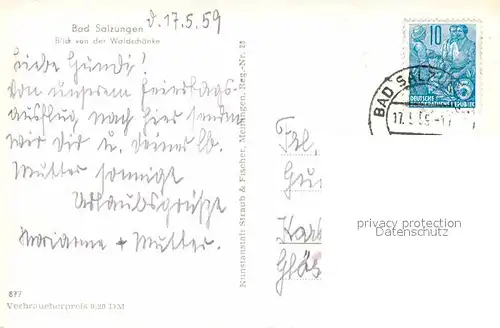 Bad Salzungen
Blick von der Waldschänke
d. 17.5.59
Liebe Gundi!
Von unserem Feiertags-
ausflug, nach hier senden
wir Dir u. Deiner lb.
Mutter sonnige
Urlaubsgrüße
Marianne + Mutter.
877
Verbraucherpreis 0,20 DM
Kunstanstalt Straub & Fischer, Meiningen, Reg.-Nr.
10
DEUTSCHE
DEMOKRATISCHE REPUBLIK
5
BAD SALZUN
17.5.59-17
Frl.
Gu
Karl
Gläs
privacy protection
Datenschutz